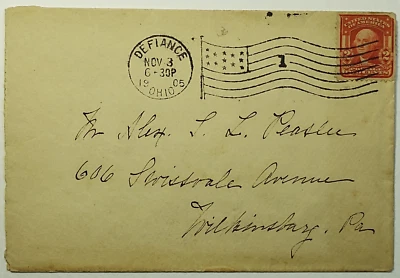 DEFIANCE
NOV 3
6-30P
1905
OHIO
1
UNITED STATES
OF AMERICA
2 2
Mr Alex. S. L. Peaslee
606 Swissvale Avenue
Wilkinsburg, Pa